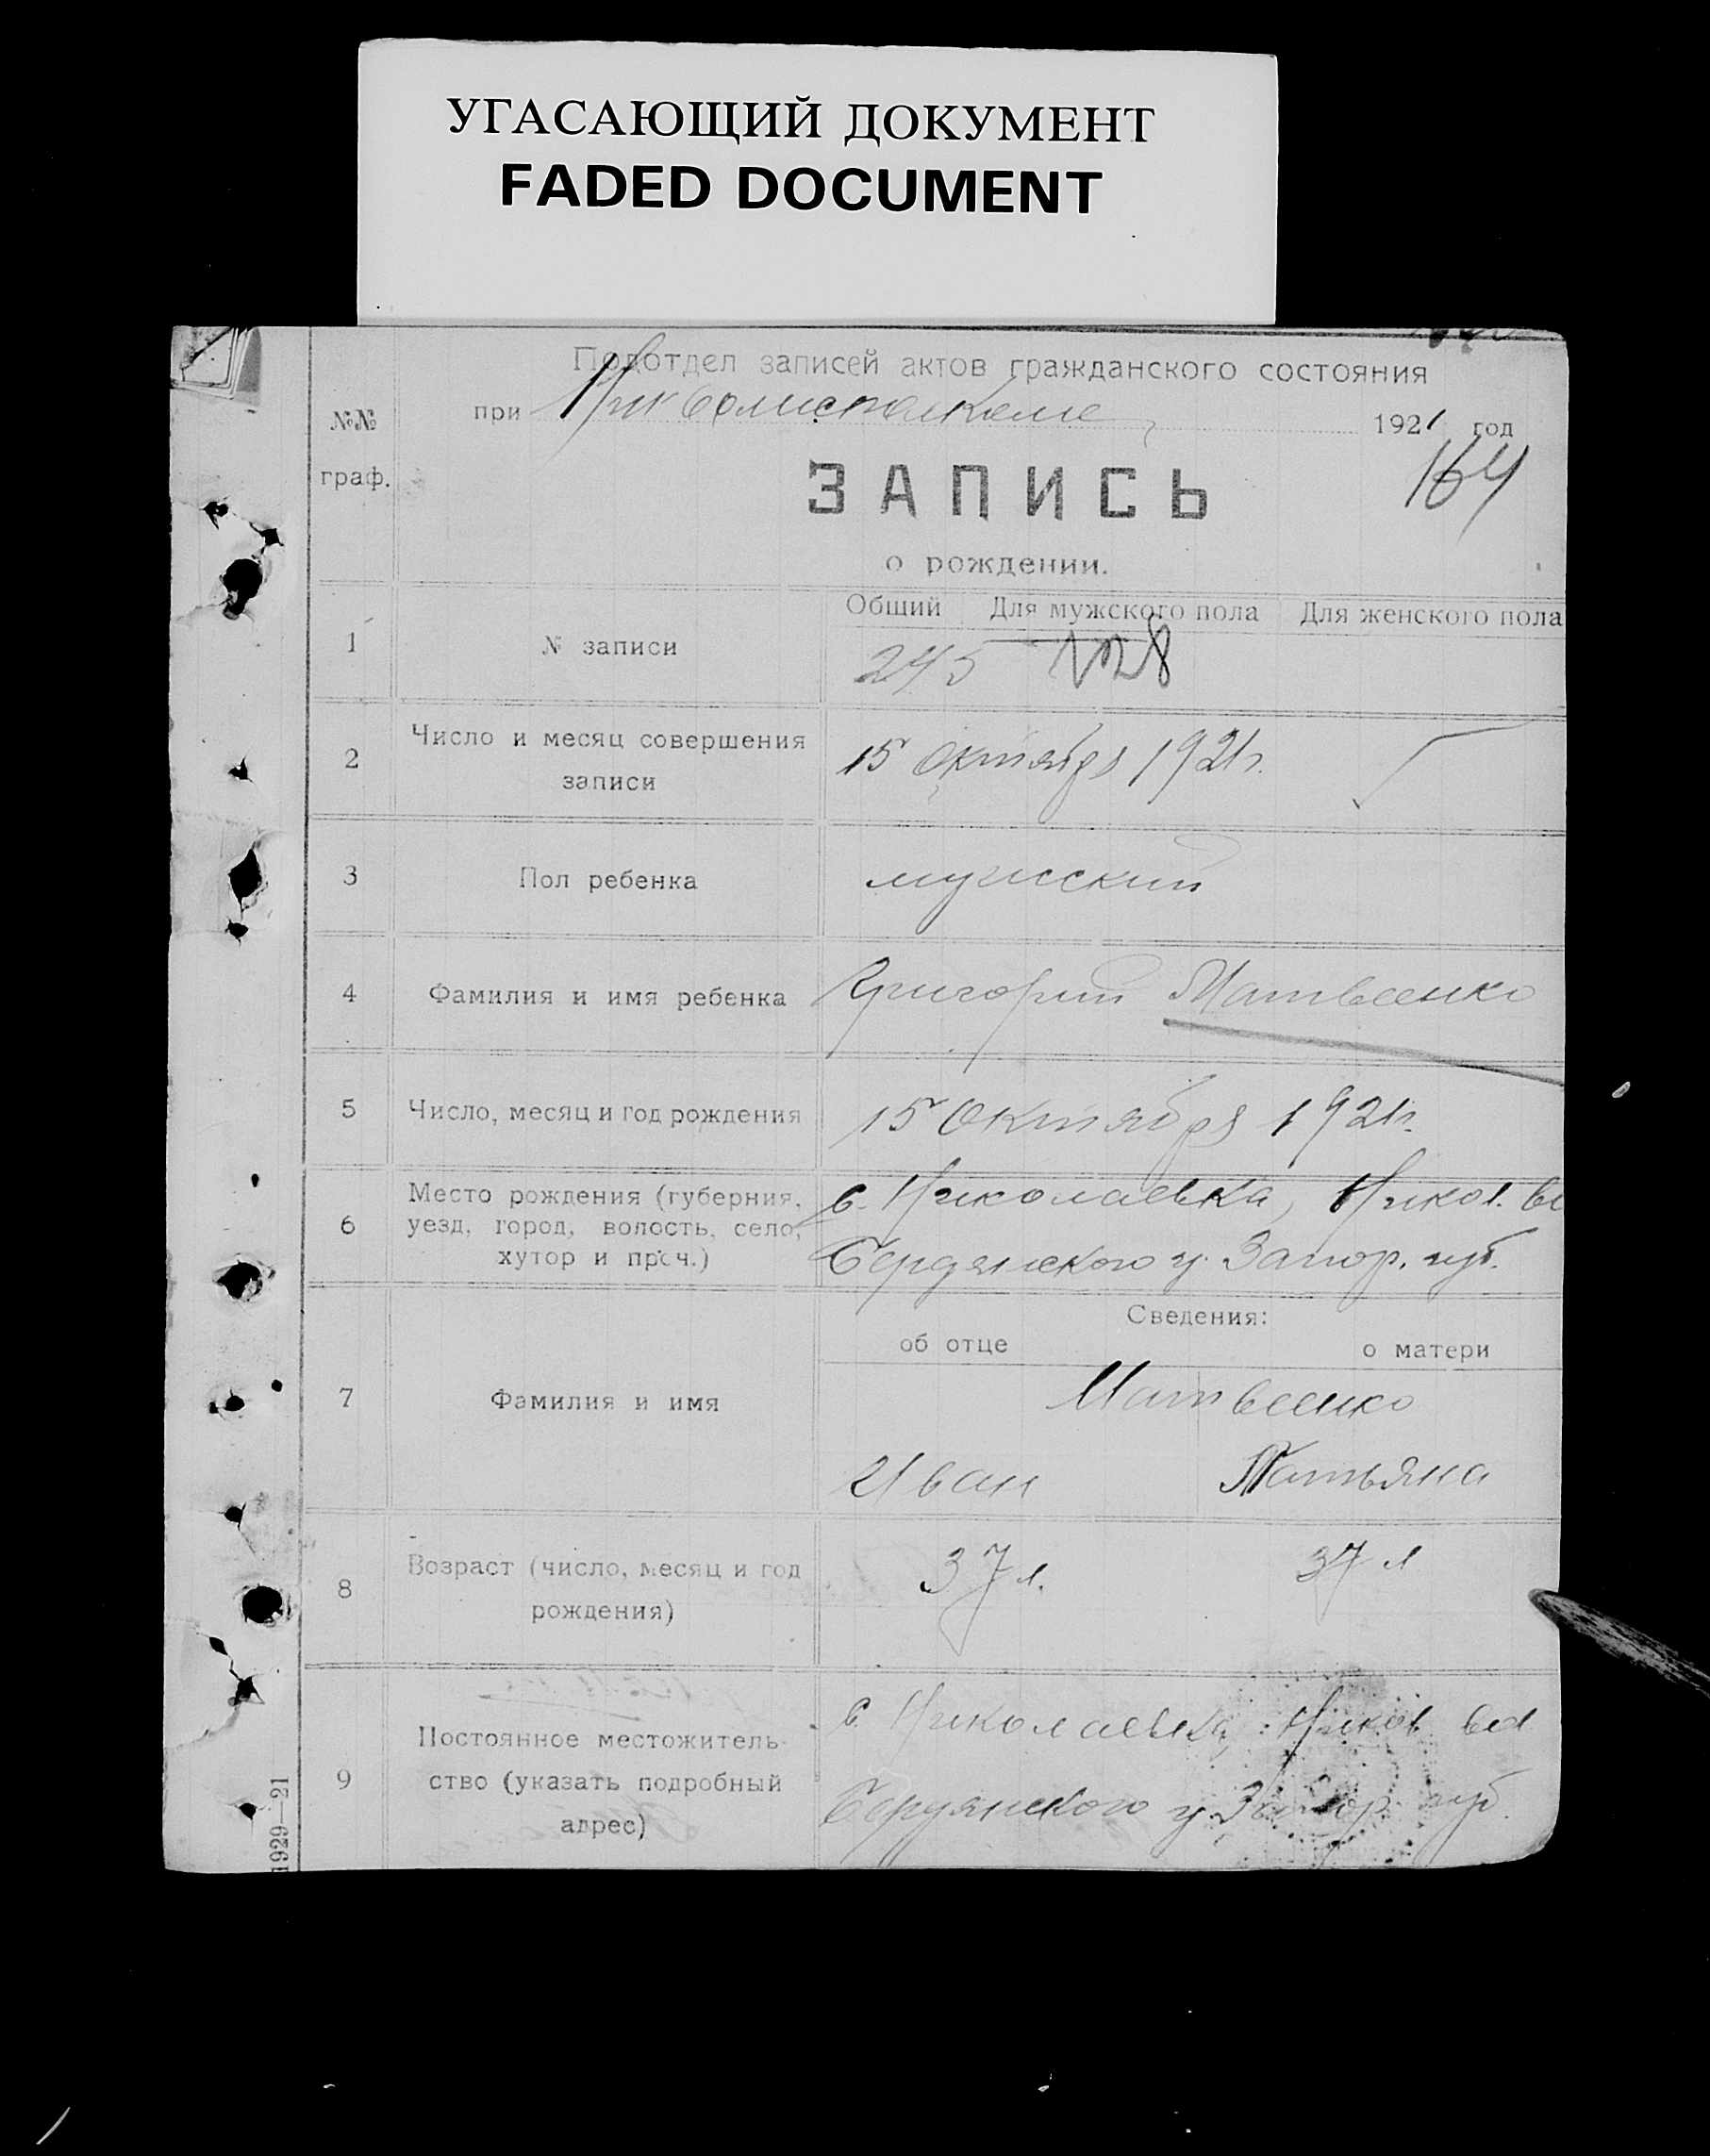 УГАСАЮЩИЙ ДОКУМЕНТ
FADED DOCUMENT
Подотдел записей актов гражданского состояния
№№ при 1921 год
граф. ЗАПИСЬ 164
о рождении.
Общий Для мужского пола Для женского пола
1 № записи 245 128
2 Число и месяц совершения
записи 15 Октября 1921г.
3 Пол ребенка мужской
4 Фамилия и имя ребенка Григорий Матвеенко
5 Число, месяц и год рождения 15 Октября 1921г.
Место рождения (губерния, с. Николаевка, Никол. в
6 уезд, город, волость, село,
хутор и проч.) Бердянского у. Запор. губ.
Сведения:
об отце о матери
7 Фамилия и имя Матвеенко
Иван Татьяна
8 Возраст (число, месяц и год 37 л. 37 л
рождения)
с. Николаевка Никол вол
Постоянное местожитель-
9 ство (указать подробный Бердянского у. Запор. губ.
адрес)
1929—21